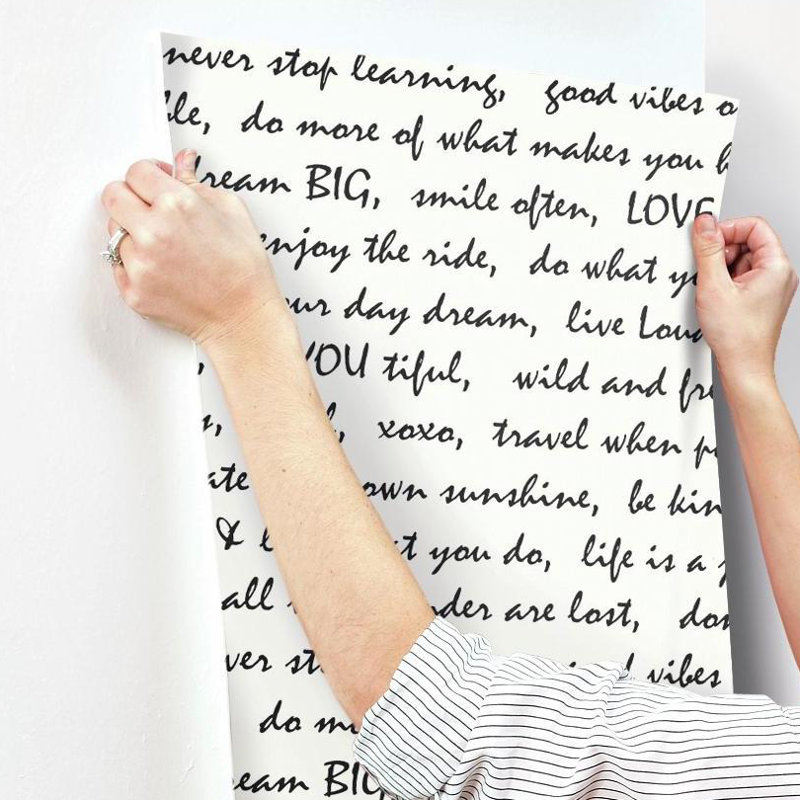 never stop learning, good vibes
do more of what makes you
dream BIG, smile often, LOVE
enjoy the ride, do what
day dream, live Loud
YOU tiful, wild and
xoxo, travel when
own sunshine, be
& you do, life is a
all are lost,
vibes
do
BIG